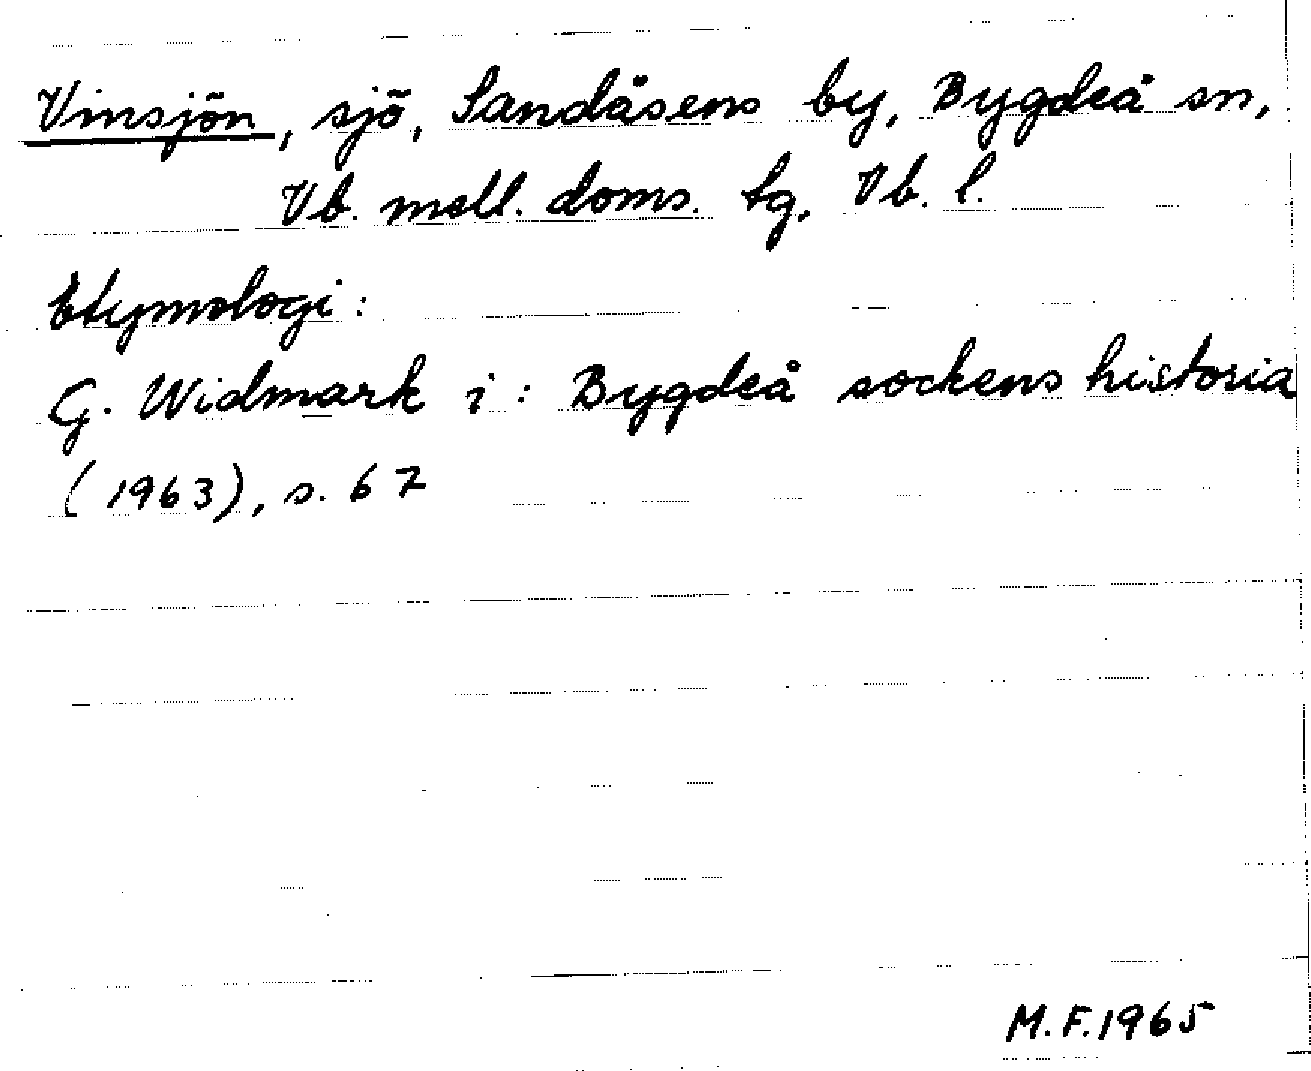 Vinsjön, sjö, Sandåsens by, Bygdeå sn,
Vb. mell. doms. tg, Vb. l.
Etymologi:
G. Widmark i: Bygdeå sockens historia
(1963), s. 67
M.F. 1965